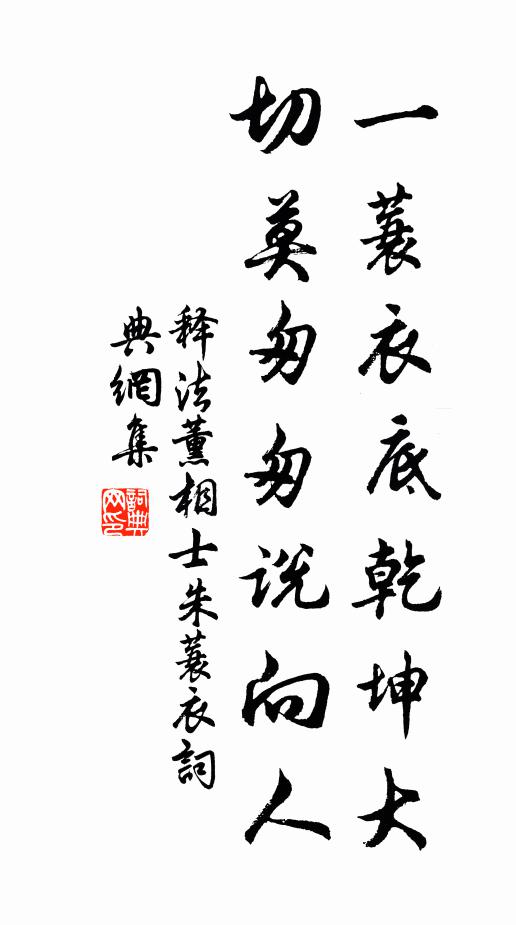 一蓑衣底乾坤大
切莫匆匆说向人
释法薰相士朱蓑衣詞
典網集
詞典网印